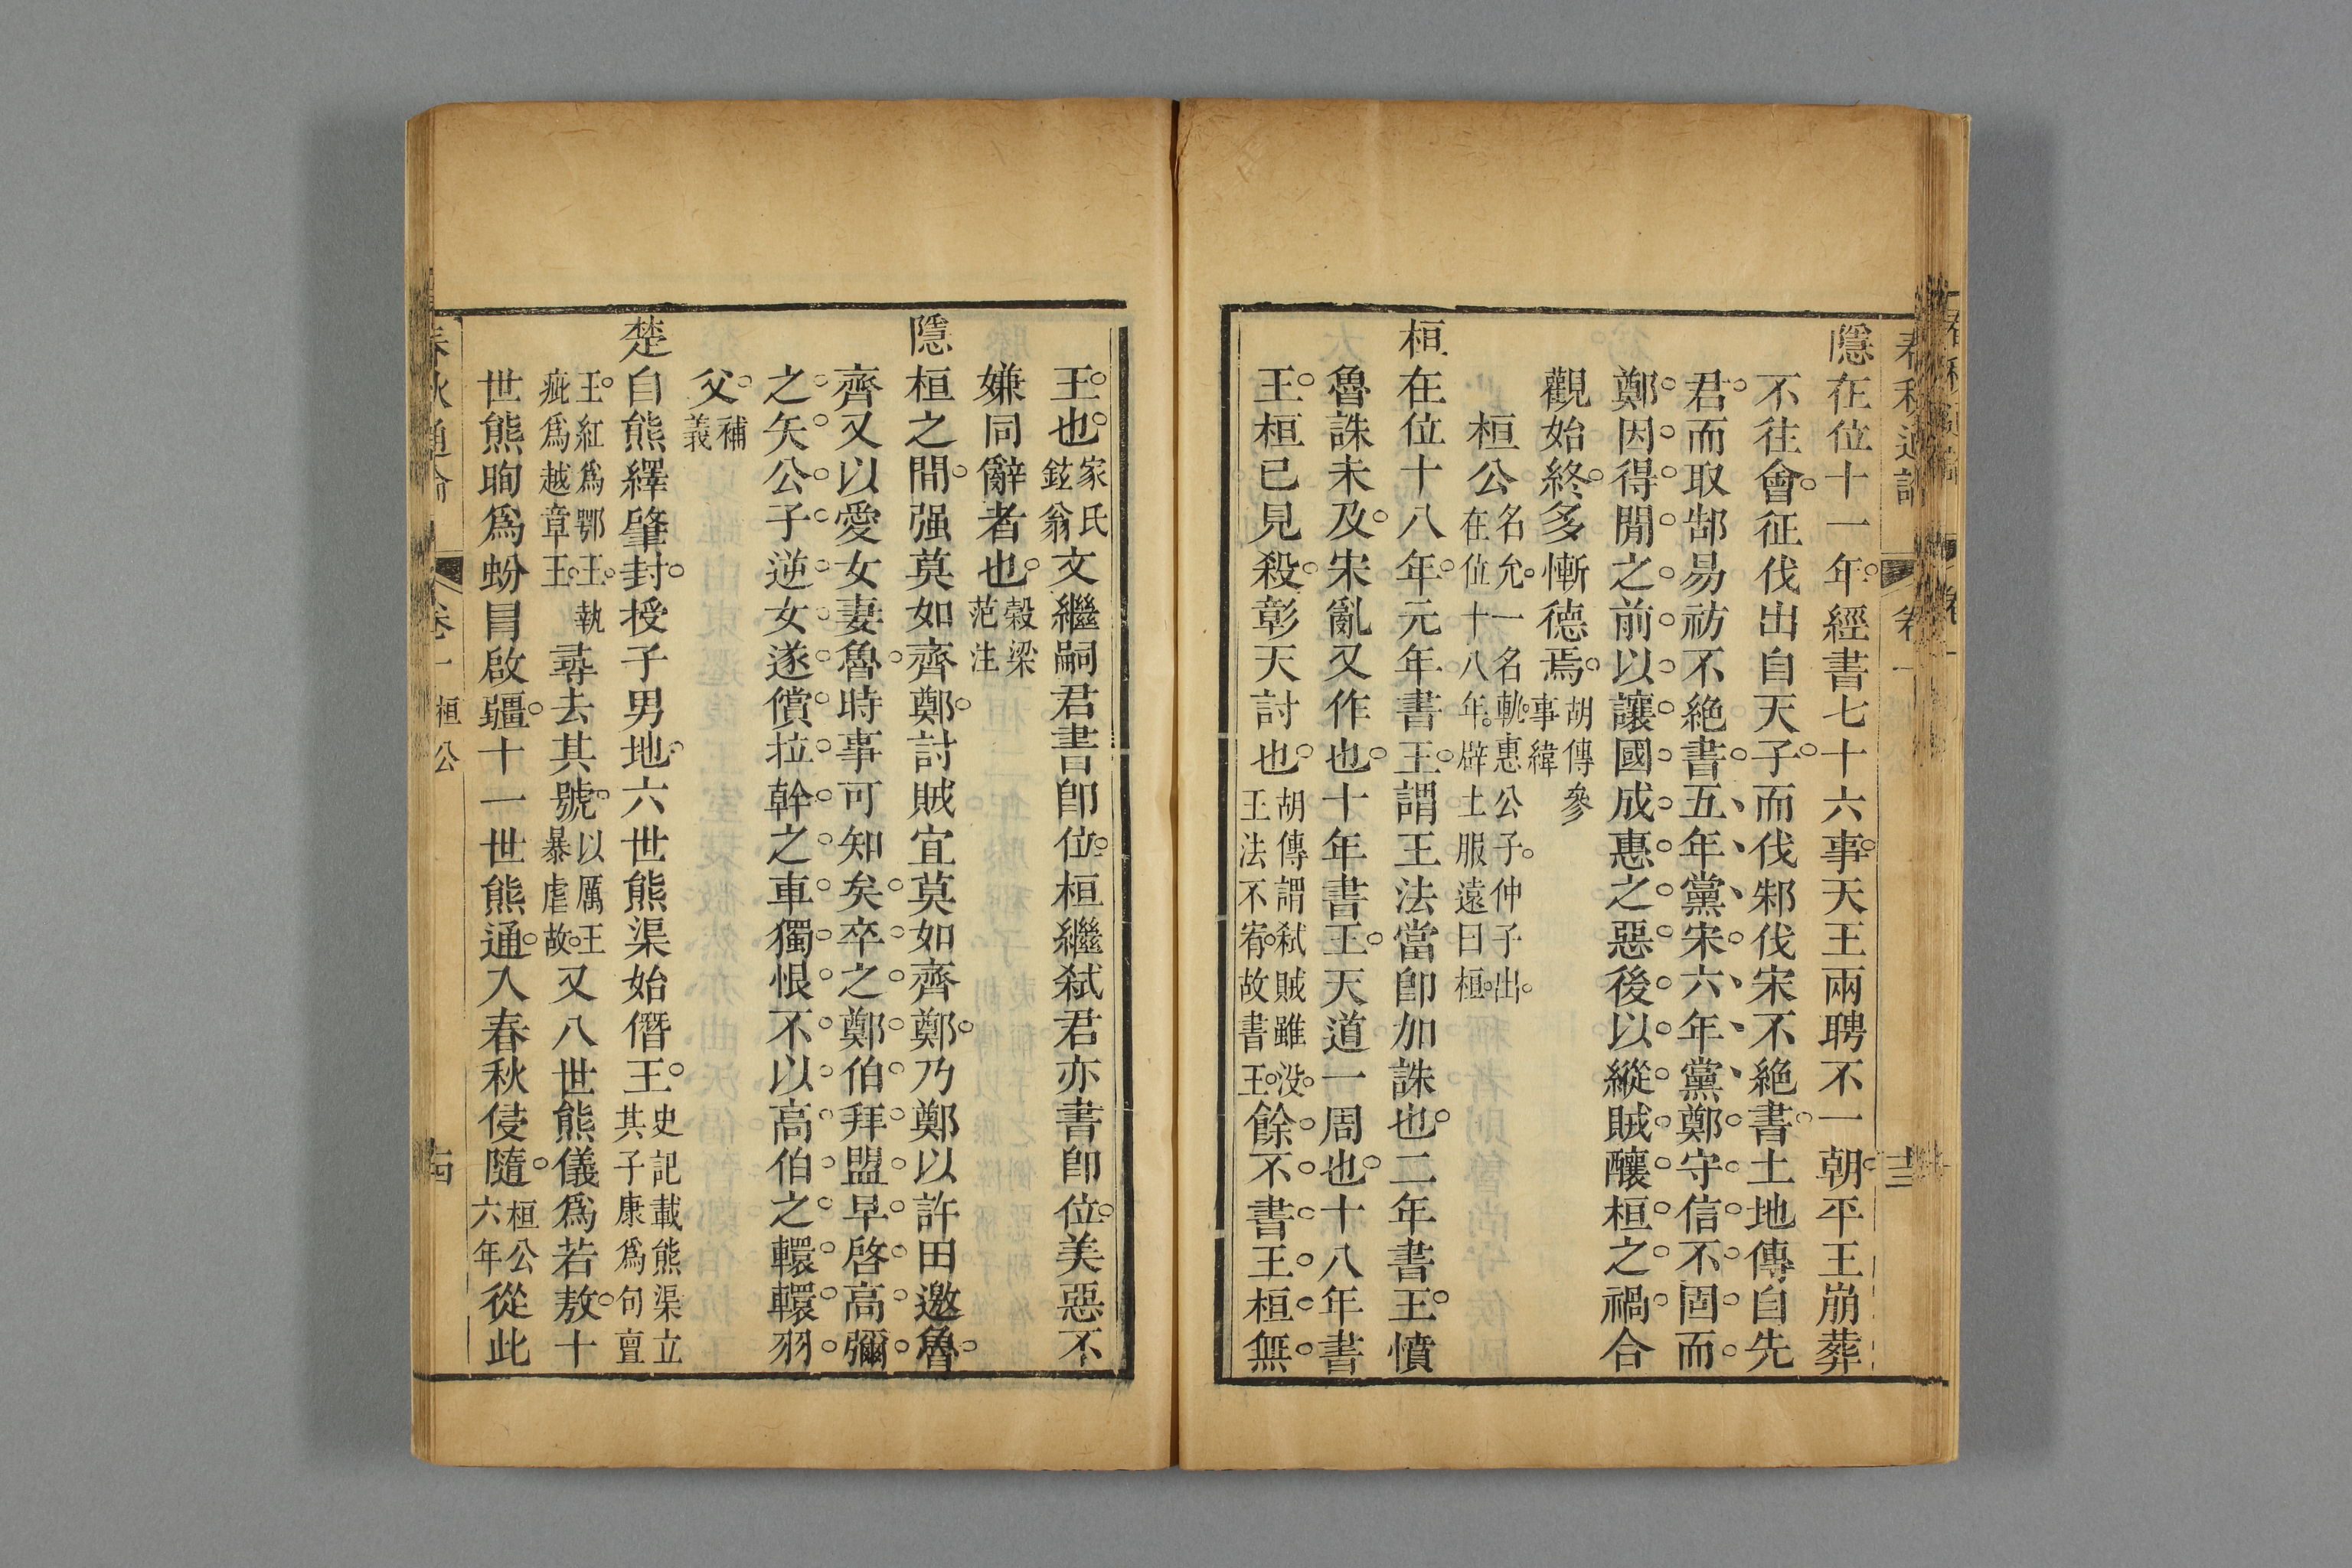 春秋通論　卷一　十三
隱在位十一年經書七十六事天王兩聘不一朝平王崩葬
不往會征伐出自天子而伐邾伐宋不絶書土地傳自先
君而取郜易祊不絶書五年黨宋六年黨鄭守信不固而
鄭因得閒之前以讓國成惠之惡後以縱賊釀桓之禍合
觀始終多慚德焉胡傳參事緯
桓公名允一名軌惠公子仲子出在位十八年辟土服遠曰桓
桓在位十八年元年書王謂王法當卽加誅也二年書王憤
魯誅未及宋亂又作也十年書王天道一周也十八年書
王桓已見殺彰天討也胡傳謂弑賊雖没王法不宥故書王餘不書王桓無
王也家氏鉉翁文繼嗣君書卽位桓繼弑君亦書卽位美惡不
嫌同辭者也穀梁范注
隱桓之間强莫如齊鄭討賊宜莫如齊鄭乃鄭以許田邀魯
齊又以愛女妻魯時事可知矣卒之鄭伯拜盟早啓高彌
之矢公子逆女遂償拉幹之車獨恨不以高伯之轘轘羽
父補義
楚自熊繹肇封授子男地六世熊渠始僭王史記載熊渠立其子康爲句亶
王紅爲鄂王執疵爲越章王尋去其號以厲王暴虐故又八世熊儀爲若敖十
世熊眴爲蚡冒啟疆十一世熊通入春秋侵隨桓公六年從此
春秋通論　卷一　桓公　十四